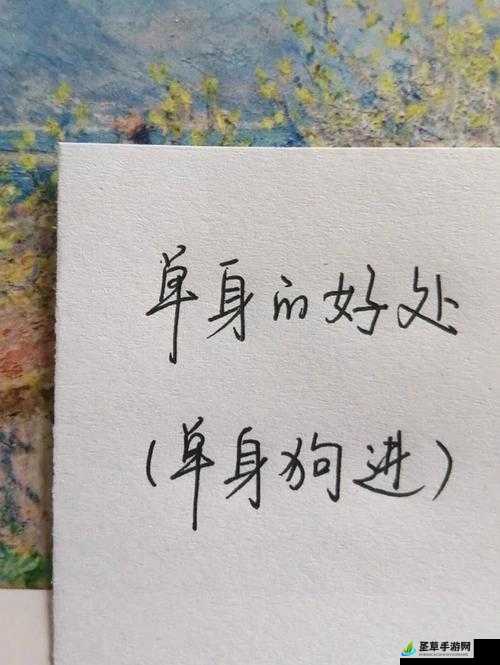 单身的好处
(单身狗进)
圣草手游网